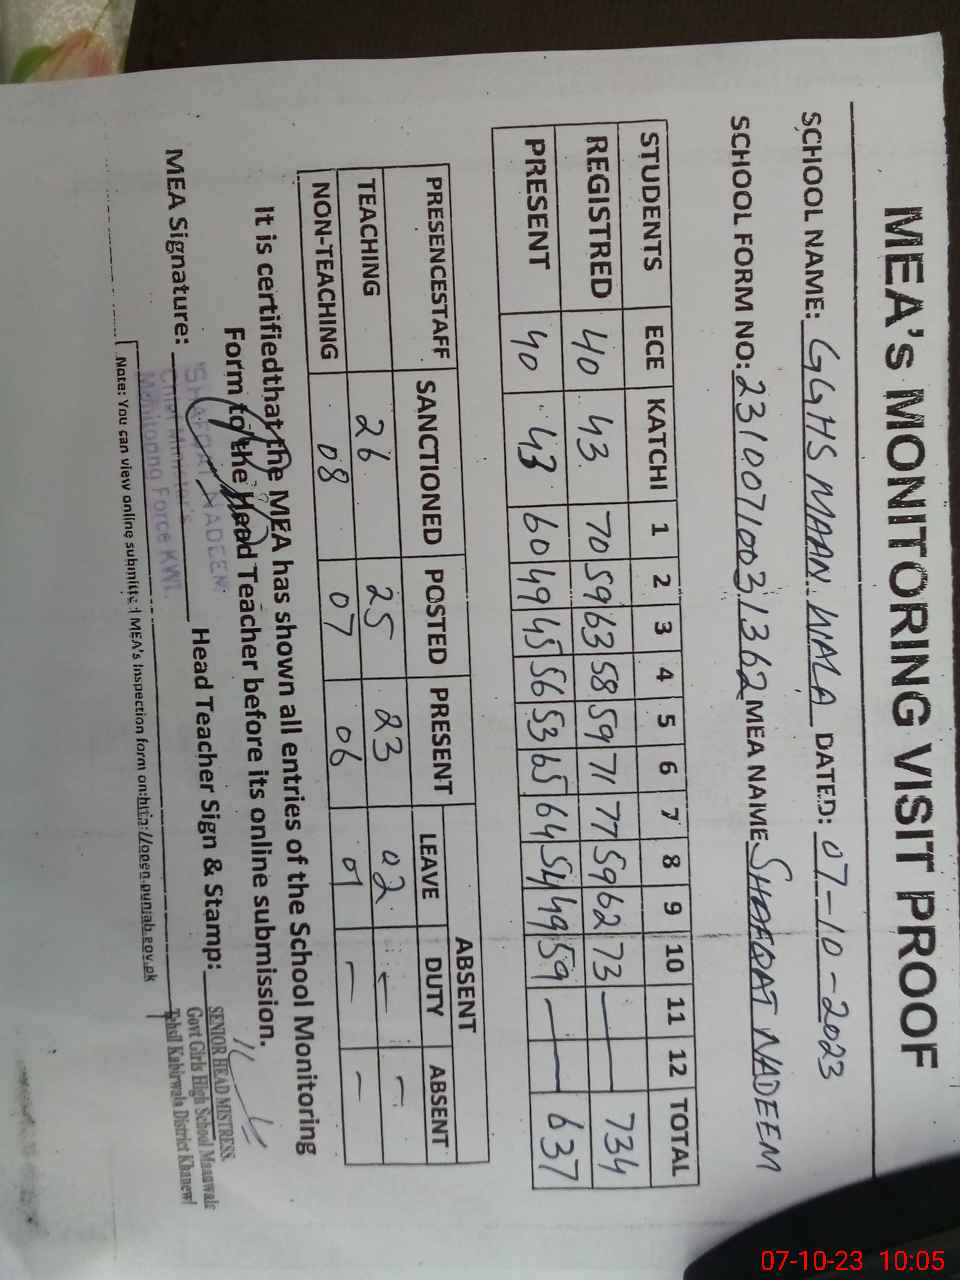 MEA's MONITORING VISIT PROOF
SCHOOL NAME: GGHS MAAN WALA DATED: 07-10-2023
SCHOOL FORM NO: 23100710031362 MEA NAME SHAFQAT NADEEM
STUDENTS ECE KATCHI 1 2 3 4 5 6 7 8 9 10 11 12 TOTAL
REGISTRED 40 43 70 59 63 58 59 71 77 59 62 73 — — 734
PRESENT 40 43 60 49 45 56 53 65 64 54 49 59 — — 637
PRESENCESTAFF SANCTIONED POSTED PRESENT ABSENT
LEAVE DUTY ABSENT
TEACHING 26 25 23 02 — —
NON-TEACHING 08 07 06 01 — —
It is certifiedthat the MEA has shown all entries of the School Monitoring
Form to the Head Teacher before its online submission.
MEA Signature: Head Teacher Sign & Stamp:
SHAFQAT NADEEM
Chief Minister's
Monitoring Force KWL
SENIOR HEAD MISTRESS.
Govt Girls High School Maanwala
Tehsil Kabirwala District Khanewl
Note: You can view online submitted MEA's Inspection form on:http://open.punjab.gov.pk
07-10-23 10:05